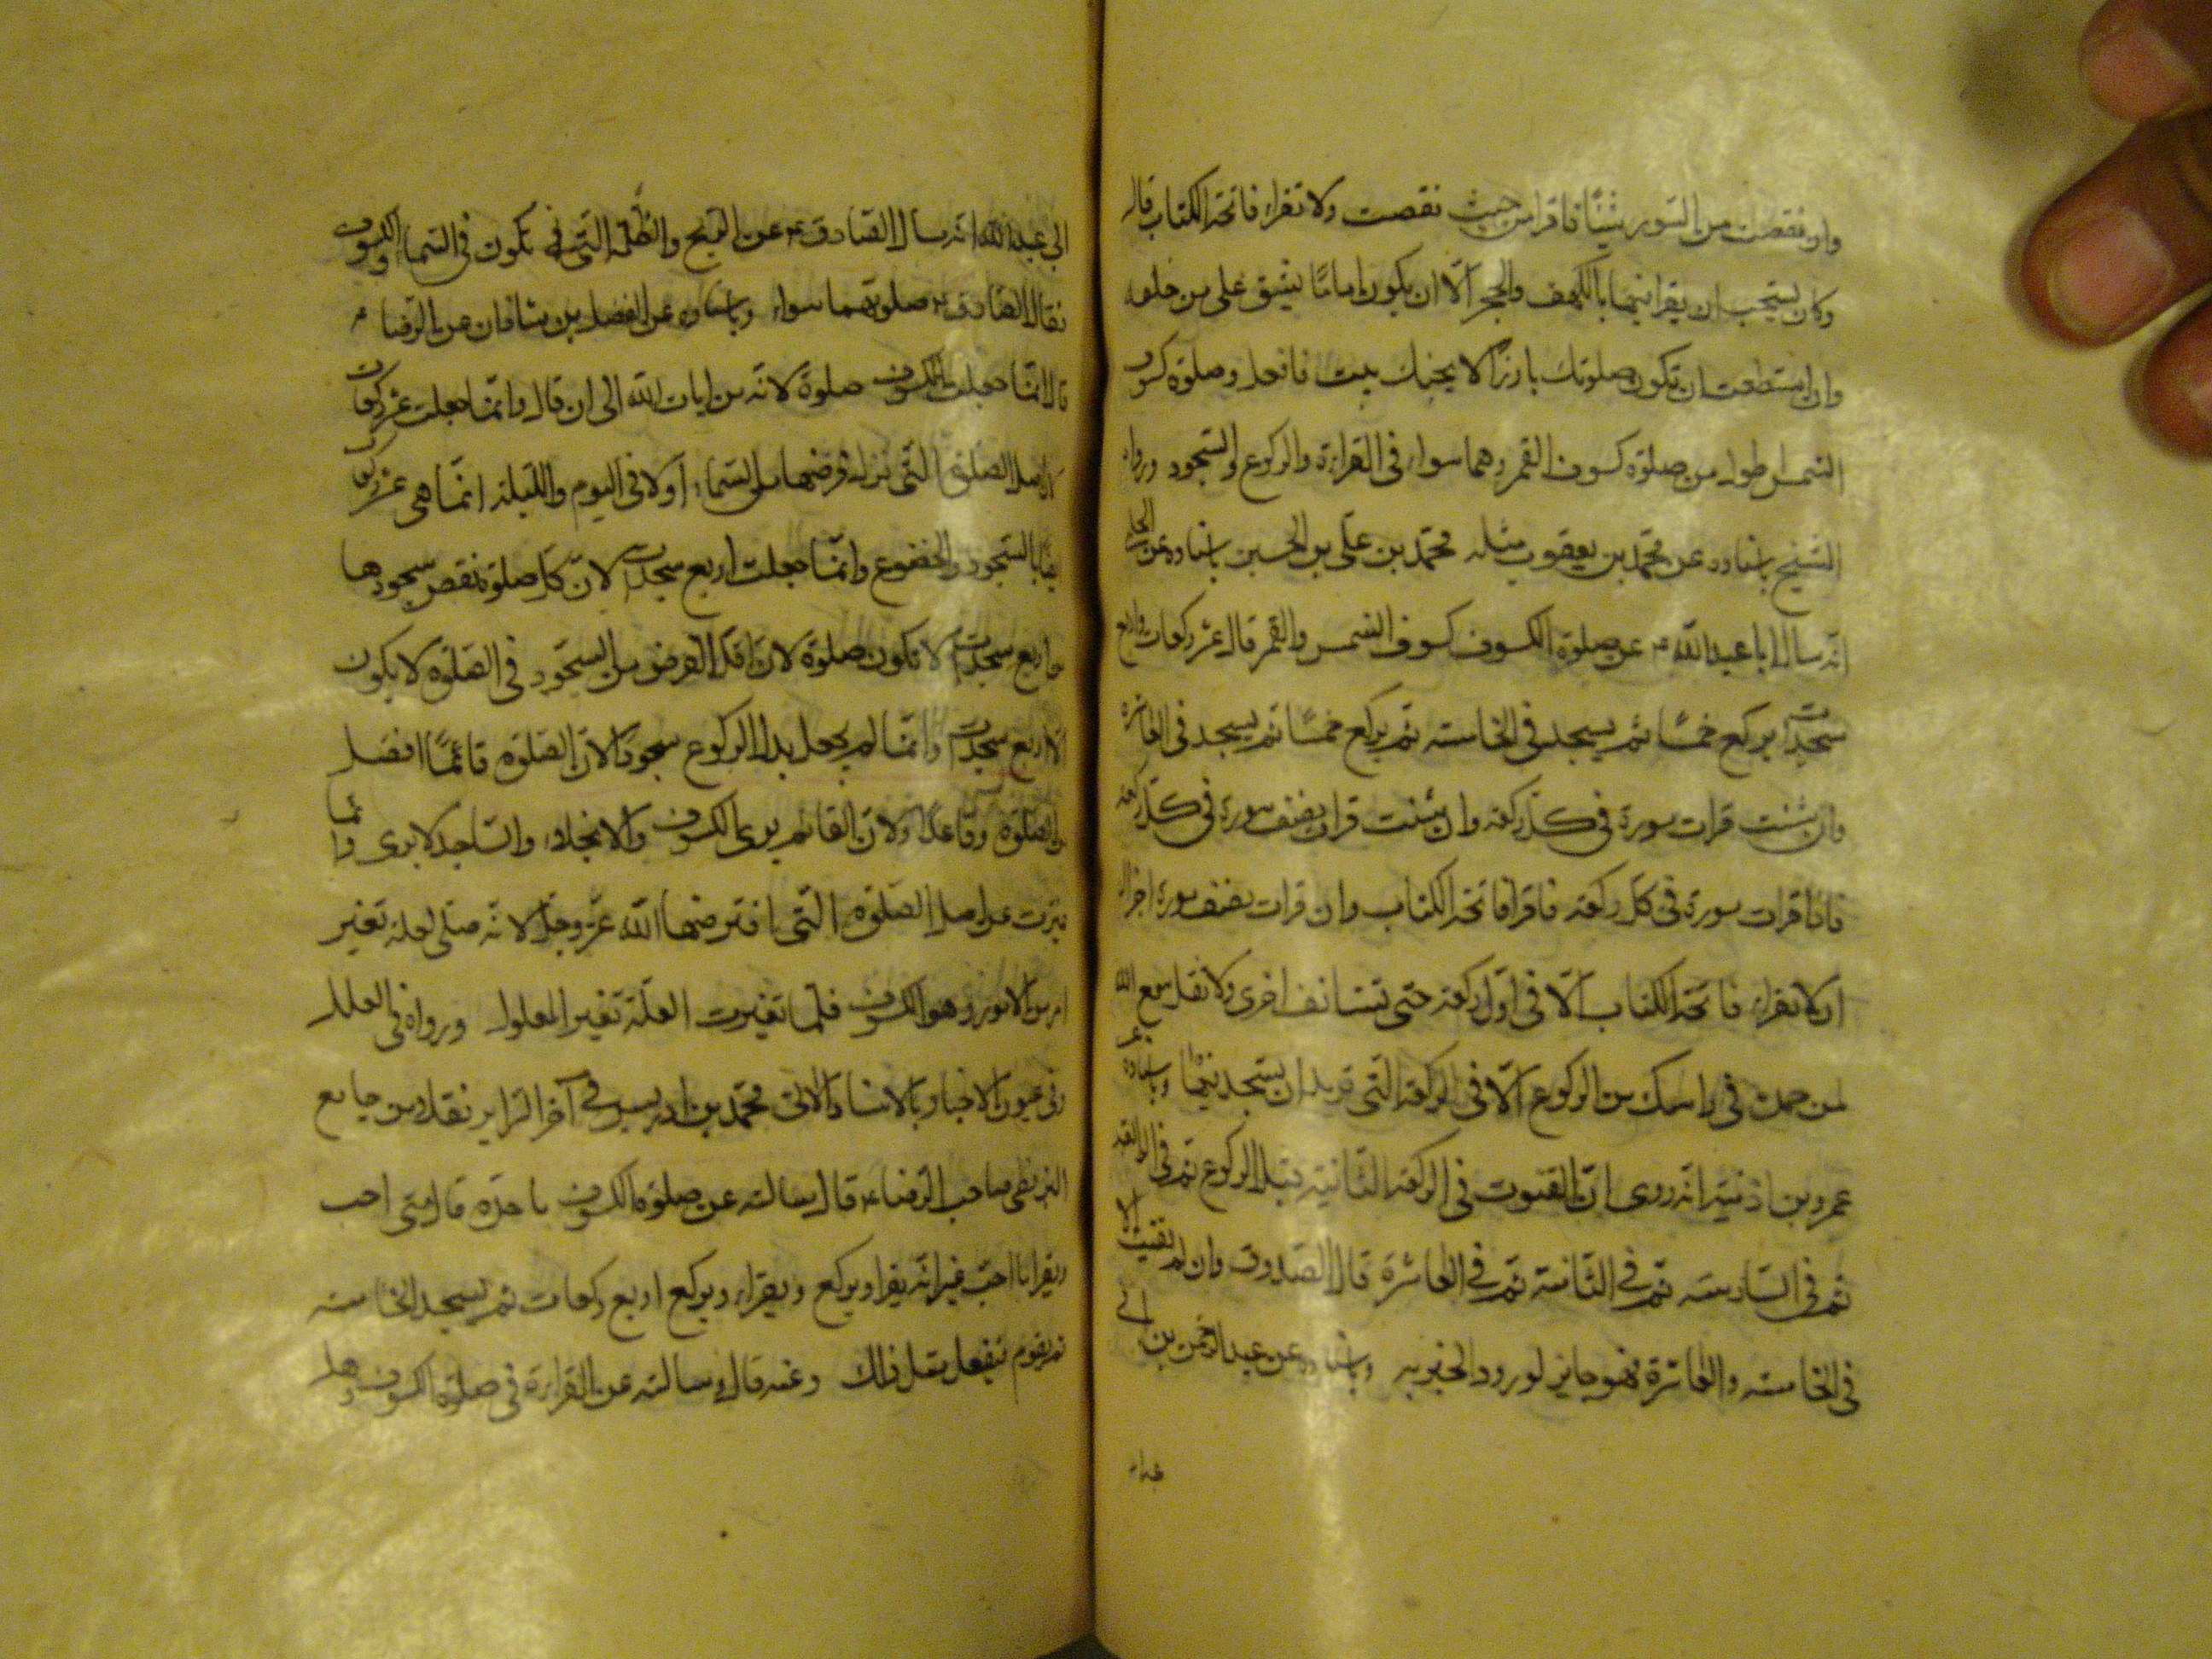 وان نقصت من السور شيئا فاقرا من حيث نقصت ولا تقراء فاتحة الكتاب قال
وكان يستحب ان يقرا فيها بالكهف والحجر الا ان يكون اماما يشق على من خلفه
وان استطعت ان تكون صلوتك بارزا لا يجنك بيت فافعل وصلوة كسوف
الشمس اطول من صلوة كسوف القمر وهما سواء في القراءة والركوع والسجود ورواه
الشيخ باسناده عن محمد بن يعقوب مثله محمد بن علي بن الحسين باسناده عن الحلبي
انه سال ابا عبد الله ع عن صلوة الكسوف كسوف الشمس والقمر قال عشر ركعات واربع
سجدات يركع خمسا ثم يسجد في الخامسة ثم يركع خمسا ثم يسجد في العاشرة
وان شئت قرات سورة في كل ركعة وان شئت قرات نصف سورة في كل ركعة
فاذا قرات سورة في كل ركعة فاقرا فاتحة الكتاب وان قرات نصف سورة اجزاك
ان لا تقراء فاتحة الكتاب الا في اول ركعة حتى تستانف اخرى ولا تقل سمع الله
لمن حمده في راسك من الركوع الا في الركعة التي تريد ان تسجد فيها وباسناده عن
عمر بن اذنية انه روى ان القنوت في الركعة الثانية قبل الركوع ثم في الرابعة
ثم في السادسة ثم في الثامنة ثم في العاشرة قال الصدوق وان لم تقنت الا
في الخامسة والعاشرة فهو جايز لورود الخبر به وباسناده عن عبد الرحمن بن ابي
ابي عبد الله انه سال الصادق ع عن الريح والظلمة التي تكون في السماء والكسوف
فقال الصادق ع صلوتهما سواء وباسناده عن الفضل بن شاذان عن الرضا ع
قال انما جعلت للكسوف صلوة لانه من ايات الله الى ان قال وانما جعلت عشر ركعات
لان اصل الصلوة التي نزل فرضها من السماء اولا في اليوم والليلة انما هي عشر ركعات
فيها السجود والخضوع وانما جعلت اربع سجدات لان كل صلوة نقص سجودها
من اربع سجدات لا تكون صلوة لان اقل الفرض من السجود في الصلوة لا يكون
الا اربع سجدات وانما لم يجعل بدل الركوع سجودا لان الصلوة قائما افضل
من الصلوة قاعدا ولان القائم يرى الكسوف والانجلاء والساجد لا يرى وانما
غيرت عن اصل الصلوة التي افترضها الله عز وجل لانه صلى لعلة تغير
امر من الامور وهو الكسوف فلما تغيرت العلة تغير المعلول ورواه في العلل
وفي عيون الاخبار بالاسناد الاتي محمد بن ادريس في آخر السراير نقلا من جامع
البزنطي صاحب الرضا ع قال سالته عن صلوة الكسوف ما حده قال متى احب
ويقرا ما احب غير انه يقرا ويركع ويقراء ويركع اربع ركعات ثم يسجد الخامسة
ثم يقوم فيفعل مثل ذلك وعنه قال سالته عن القراءة في صلوة الكسوف وهل